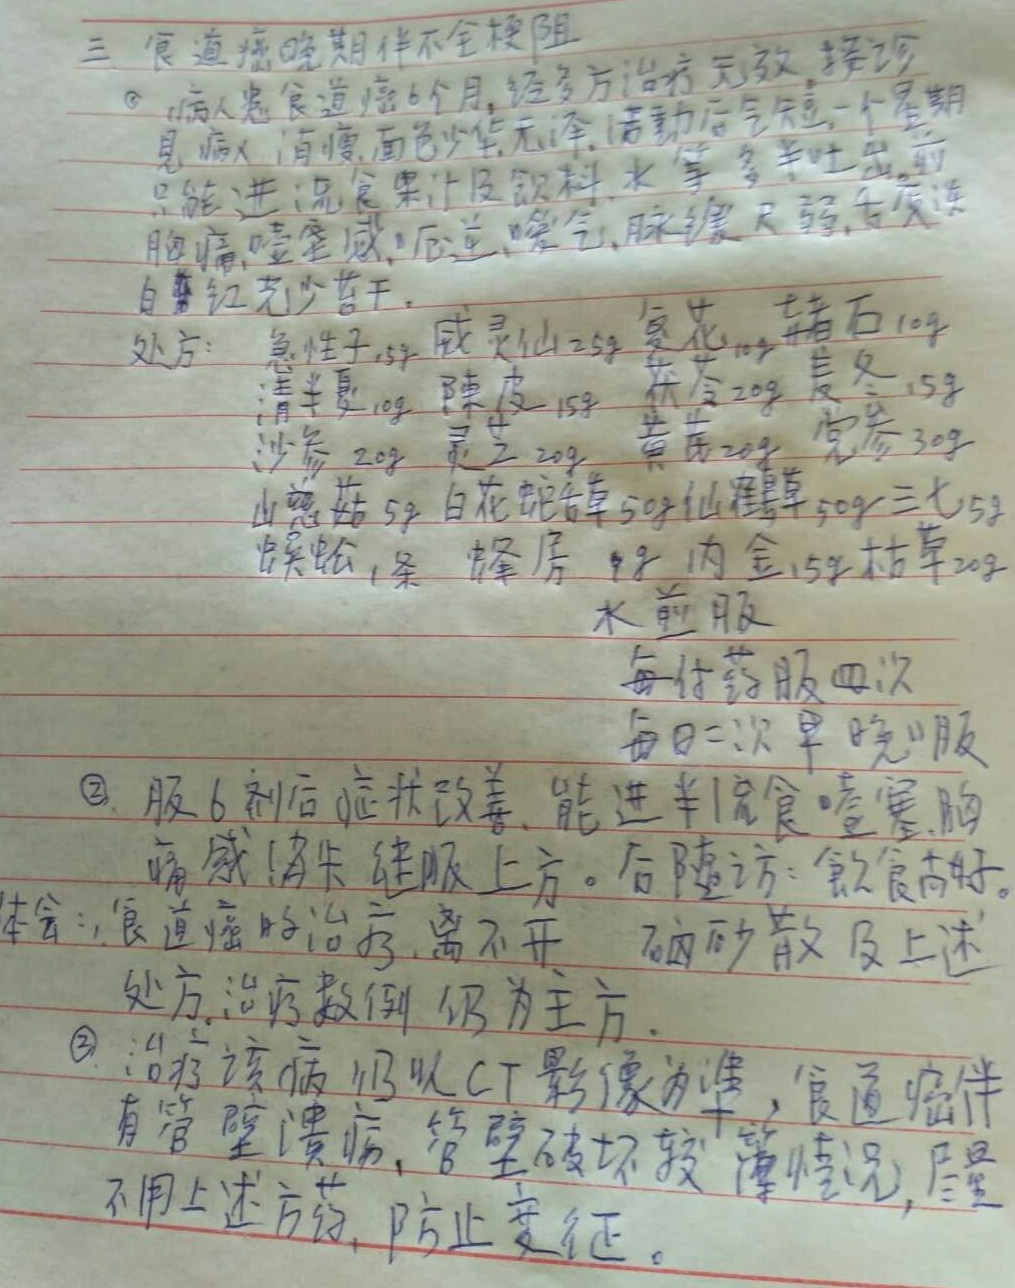 三 食道癌晚期伴不全梗阻
① 病人患食道癌6个月,经多方治疗无效,接诊
见病人消瘦,面色少华无泽,活動后气短,一个星期
只能进流食果汁及飲料,水等多半吐出,前
胸痛,噎塞感,呃逆,嗳气,脉缓尺弱,舌质淡
白 红光少苔干.
处方: 急性子15g 威灵仙25g 复花10g 赭石10g
清半夏10g 陳皮15g 茯苓20g 麦冬15g
沙参20g 灵芝20g 黄芪20g 党参30g
山慈菇5g 白花蛇舌草50g 仙鶴草50g 三七5g
蜈蚣1条 蜂房9g 内金15g 枯草20g
水煎服
每付药服四次
每日二次早晚服
②. 服6剂后症状改善,能进半流食噎塞,胸
痛感消失继服上方。后随访:飲食尚好。
体会:.食道癌的治疗,离不开 硇砂散及上述
处方,治疗数例仍为主方.
② 治疗该病仍以CT影像为準,食道癌伴
有管壁溃疡,管壁破坏较薄情况,尽量
不用上述方药,防止变征。